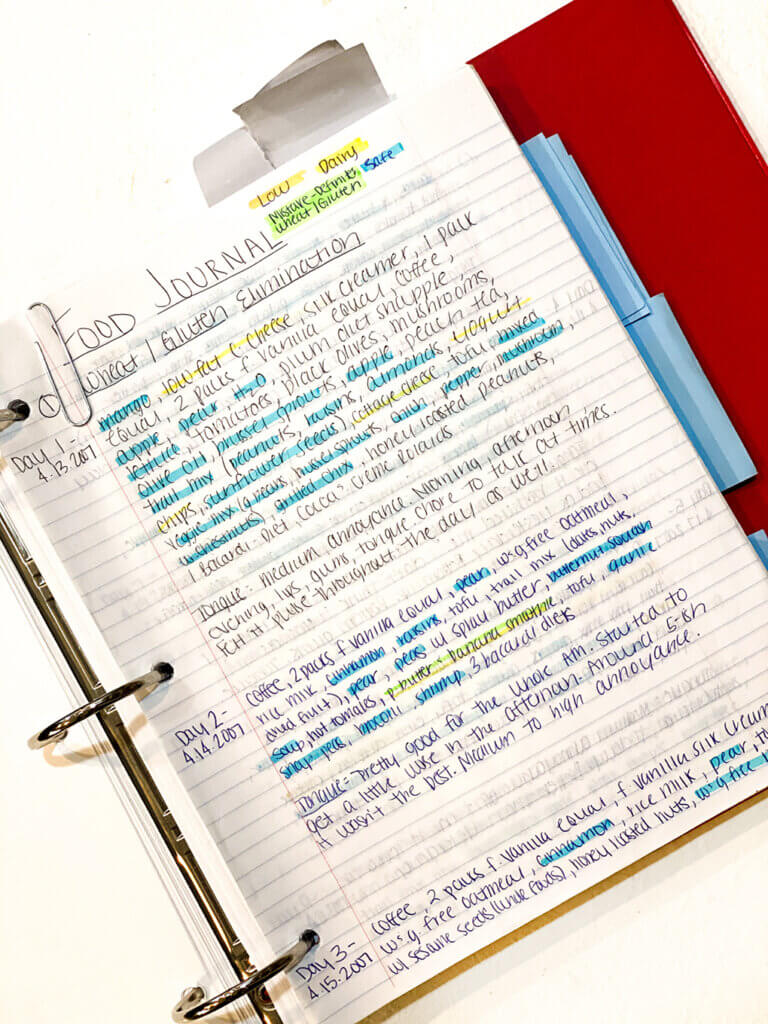 Low Dairy
Mistake-Definite Safe
Wheat/Gluten
FOOD JOURNAL
Wheat/Gluten Elimination
①
Day 1-
4.13.2007
mango, low fat c. cheese, silk creamer, 1 pack
equal, 2 packs f. vanilla equal, coffee,
apple, pear, H2O, plum diet snapple,
lettuce, tomatoes, black olives, mushrooms,
olive oil, brussel sprouts, apple, peach tea,
trail mix (peanuts, raisins, almonds, yogurt
chips, sunflower seeds), cottage cheese, tofu, mixed
veggie mix (g. beans, brussel sprouts, onion, pepper, mushrooms,
w. chestnuts), grilled chix, honey roasted peanuts,
1 Bacardi-Diet, cocoa creme Rolaids
Tongue- medium annoyance morning, afternoon,
evening, lips, gums, tongue. chore to talk at times.
Felt it pulse throughout the day as well.
Day 2-
4.14.2007
coffee, 2 packs f. vanilla equal, pear, w.g. free oatmeal,
rice milk, cinnamon, raisins, tofu, trail mix (dates, nuts,
dried fruit), pear, peas w/ spray butter, butternut squash
soup, hot tomales, p-butter banana smoothie, tofu,
snap peas, broccoli, shrimp, 3 bacardi diets
Tongue- pretty good for the whole AM. Started to
get a little worse in the afternoon. Around 5-8h
it wasn't the best. Medium to high annoyance.
Day 3-
4.15.2007
coffee, 2 packs f. vanilla equal, f. vanilla silk
w.g. free oatmeal, cinnamon, rice milk, pear,
w/ sesame seeds (whole foods), honey roasted nuts, w.g. free